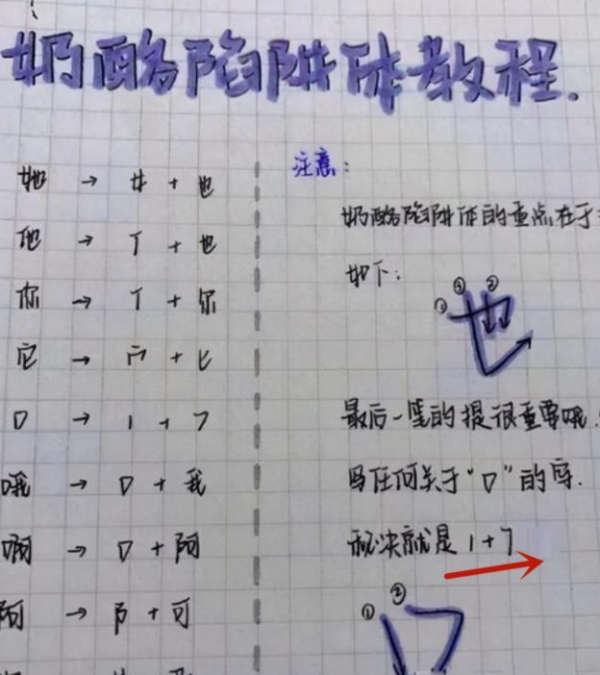 奶酪陷阱体教程.
她 → 女 + 也
他 → 亻 + 也
你 → 亻 + 尔
它 → 宀 + 匕
口 → 1 + 7
哦 → 口 + 我
啊 → 口 + 阿
阿 → 阝 + 可
注意:
奶酪陷阱体的重点在于
如下:
① ③ ②
也
最后一笔的提很重要哦.
写任何关于“口”的字.
秘诀就是 1+7
① ②
口